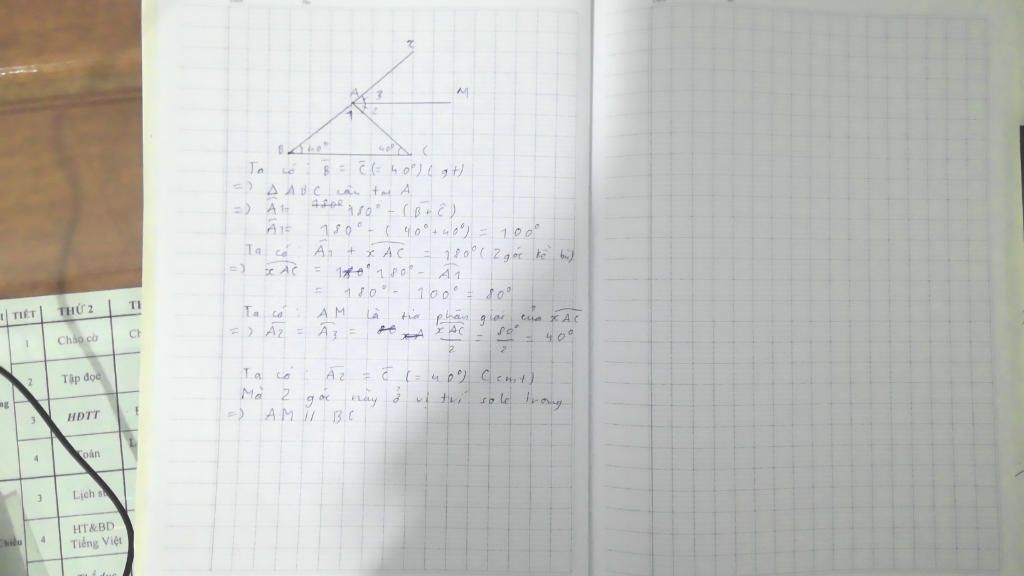 x
A 3 M
1 2
B 40° 40° C
Ta có : B̂ = Ĉ (= 40°) (gt)
=) △ ABC cân tại A
=) Â1= 180° - (B̂ + Ĉ)
Â1= 180° - ( 40° + 40°) = 100°
Ta có: Â1 + xAC = 180° ( 2 góc kề bù)
=) xAC = 180° - Â1
= 180° - 100° = 80°
Ta có: AM là tia phân giác của xAC
=) Â2 = Â3 = xAC/2 = 80°/2 = 40°
Ta có : Â2 = Ĉ (= 40°) (cmt)
Mà 2 góc này ở vị trí sole trong
=) AM // BC
TIẾT THỨ 2
1 Chào cờ
2 Tập đọc
3 HĐTT
4 Toán
3 Lịch
4 HT&BD
Tiếng Việt